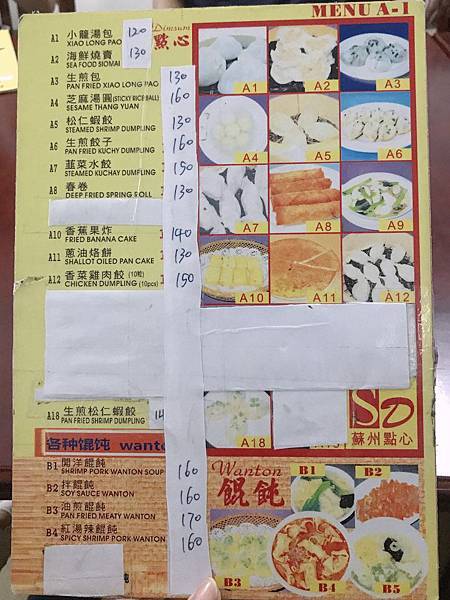 MENU A-1
Dimsum
點心
A1 小龍湯包 120
XIAO LONG PAO
A2 海鮮燒賣 130
SEA FOOD SIOMAI
A3 生煎包 130
PAN FRIED XIAO LONG PAO
A4 芝麻湯圓(STICKY RICE BALL) 160
SESAME THANG YUAN
A5 松仁蝦餃 130
STEAMED SHRIMP DUMPLING
A6 生煎餃子 160
PAN FRIED KUCHY DUMPLING
A7 韮菜水餃 150
STEAMED KUCHAY DUMPLING
A8 春卷 130
DEEP FRIED SPRING ROLL
A10 香蕉果炸 140
FRIED BANANA CAKE
A11 蔥油烙餅 130
SHALLOT OILED PAN CAKE
A12 香菜雞肉餃 (10粒) 150
CHICKEN DUMPLING (10pcs)
A18 生煎松仁蝦餃 14
PAN FRIED SHRIMP DUMPLING
A1 A2 A3
A4 A5 A6
A7 A8 A9
A10 A11 A12
A18
SD
蘇州點心
各种馄饨 wanto
B1 開洋餛飩 160
SHRIMP PORK WANTON SOUP
B2 拌餛飩 160
SOY SAUCE WANTON
B3 油煎餛飩 170
PAN FRIED MEATY WANTON
B4 紅湯辣餛飩 160
SPICY SHRIMP PORK WANTON
飩
Wanton
餛飩
B1 B2
B3 B4 B5